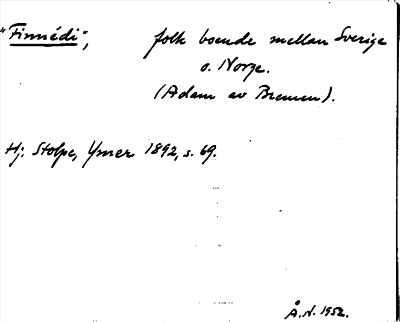 "Finnédi", folk boende mellan Sverige
o. Norge.
(Adam av Bremen).
Hj. Stolpe, Ymer 1892, s. 69.
Å.N. 1952.